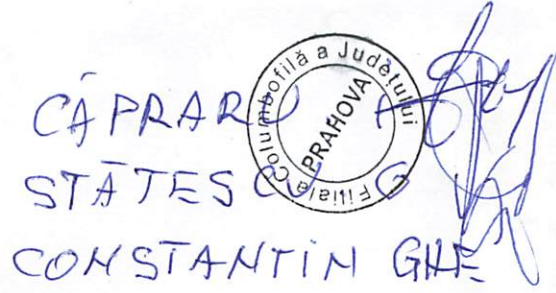 CĂPRARU A
STĂTESCU G
CONSTANTIN GHE
Filiala Columbofilă a Județului
PRAHOVA